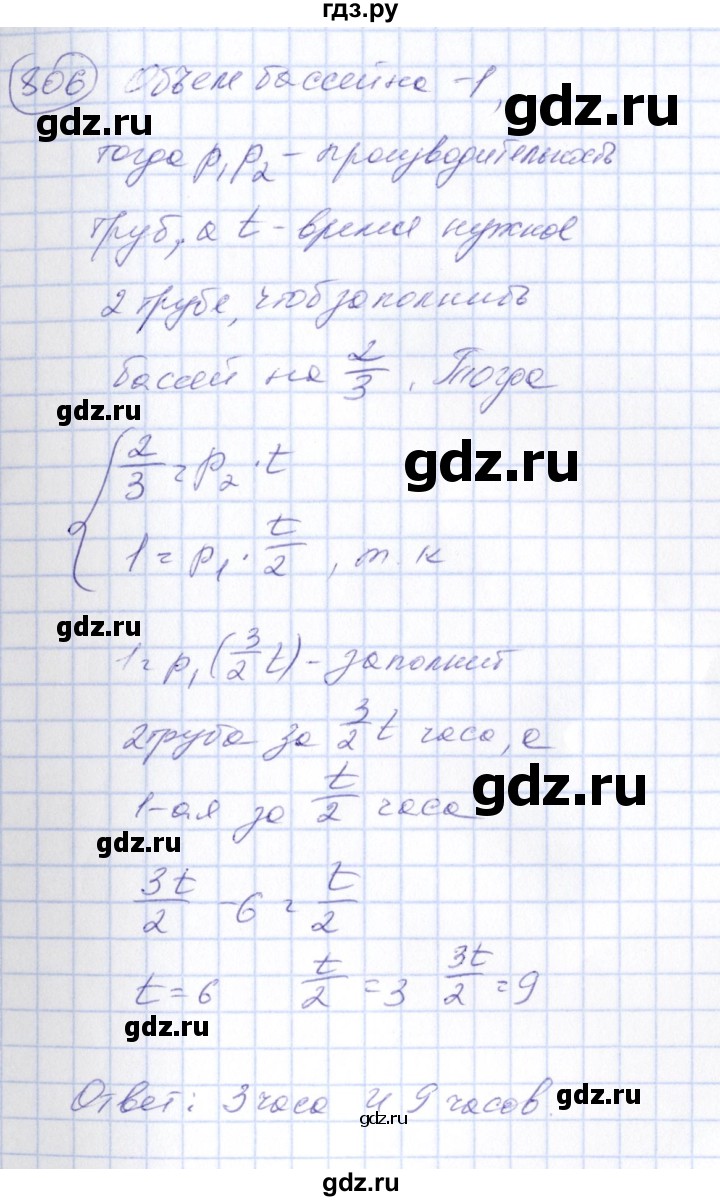 гдз.ру
806 Объем бассейна -1,
тогда p₁p₂ - производительность
труб, а t - время нужное
2 трубе, чтоб заполнить
бассей на 2/3. Тогда
gdz.ru
gdz.ru
{ 2/3 = p₂ · t
1 = p₁ · t/2, т.к
gdz.ru
1 = p₁(3/2 t) - заполнит
2 труба за 3/2 t часа, а
gdz.ru
1-ая за t/2 часа
gdz.ru
3t/2 - 6 = t/2
t = 6 t/2 = 3 3t/2 = 9
gdz.ru
Ответ: 3 часа и 9 часов.
gdz.ru
gdz.ru
gdz.ru